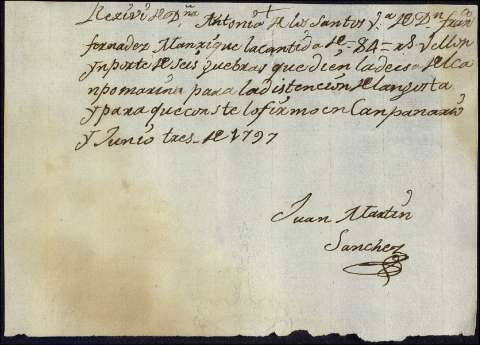 Rexivi de D.ña Antonia de los Santos v.a de D.n Fran.co
fernadez Manrique la cantida de = 84 = rs vellon
ynporte de seis quebras que dien la desa de lca
npo maxin para la distencion de langosta
y para que conste lo firmo en Canpanario
y Junio tres de 1797
Juan Martin
Sanchez